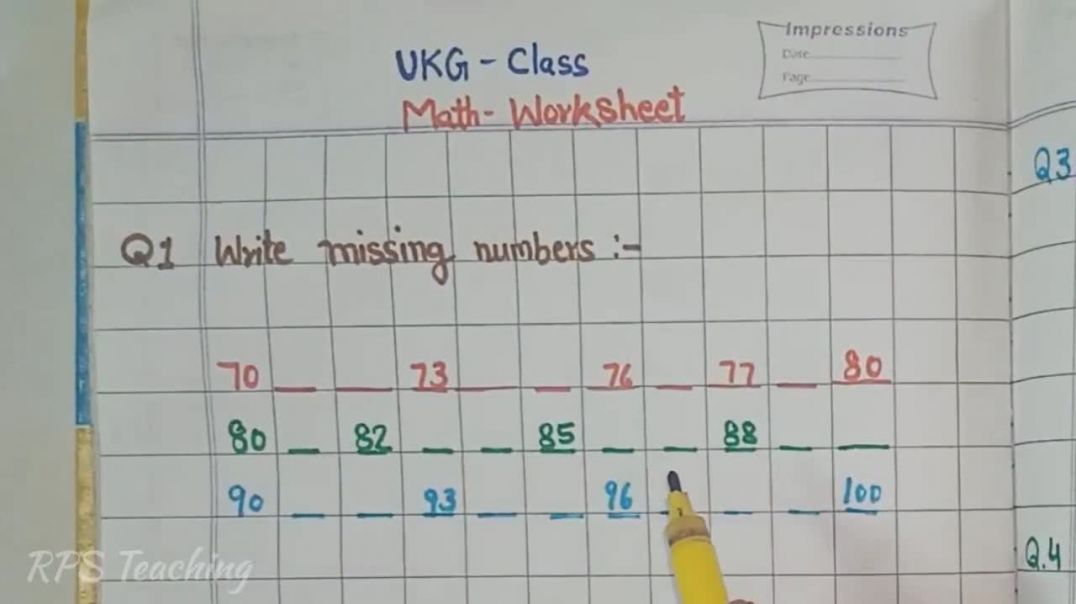 Impressions
Date
Page
UKG - Class
Math - Worksheet
Q3
Q1 Write missing numbers :-
70 __ __ 73 __ __ 76 __ 77 __ 80
80 __ 82 __ __ 85 __ __ 88 __ __
90 __ __ 93 __ __ 96 __ __ __ 100
Q.4
RPS Teaching